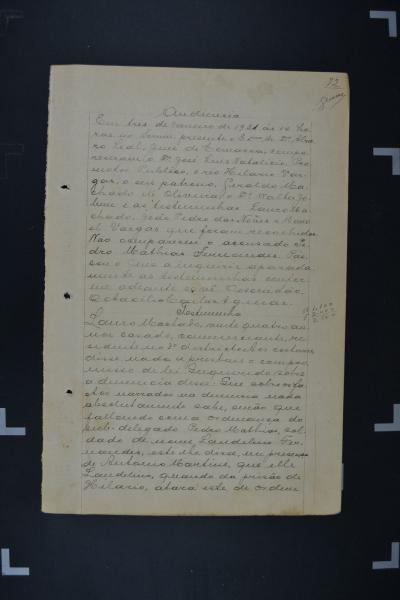 22
Audiencia
Em tres de Janeiro de 1931 ás 10 ho-
ras no forum, presente o Exmo Sr. Dr. Alva-
ro Leal, Juiz de Comarca, compa-
receram o Dr. José Luiz Natalicio, Pro-
motor Publico, o réo Hilario Var-
gas, o seu patrono, Geraldo Ma-
chado de Oliveira, o Dr.
e as testemunhas Lauro Ma-
chado, João Pedro das Neves e
Vargas que foram recolhidas.
Não compareceu o accusado Pe-
dro Mathias Fernandes. Pas-
sou o Juiz a inquirir separada-
mente as testemunhas confor-
me adiante se vê. O escrivão,
Testemunha
Lauro Machado, vinte quatro an-
nos, casado, commerciante, re-
sidente no 3º districto, aos costumes
disse nada e prestou o compro-
misso da lei. Inquirido sobre
a denuncia disse: Que sobre os fa-
ctos narrados na denuncia nada
absolutamente sabe, senão que
fallando com a ordenança do
sub-delegado Pedro Mathias, sol-
dado de nome Laudelino Fer-
nandes, este lhe disse, em presença
de Antonio Martins, que elle
Laudelino, quando da prisão de
Hilario, atára este de ordem